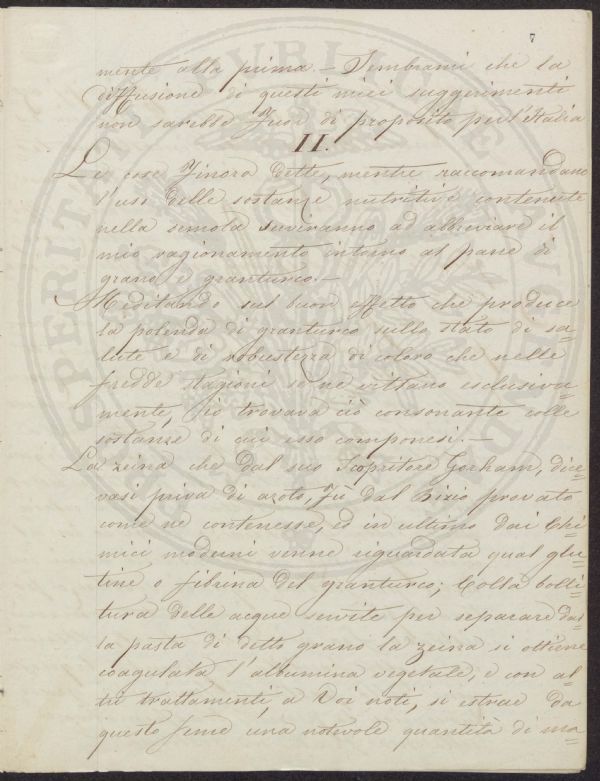 7
mente alla prima – Sembrami che la
diffusione di questi miei suggerimenti
non sarebbe fuor di proposito per l'Italia
II.
Le cose finora dette, mentre raccomandano
l'uso delle sostanze nutritive contenute
nella semola serviranno ad abbreviare il
mio ragionamento intorno al pane di
grano e granturco. –
Meditando sul buon effetto che produce
la polenda di granturco sullo stato di sa=
lute e di robustezza di coloro che nelle
fredde stagioni se ne vittano esclusiva=
mente, io trovava ciò consonante colle
sostanze di cui esso componesi. –
La zeina che dal suo Scopritore Gorham, dice=
vasi priva di azoto, fù dal Bizio provato
come ne contenesse, ed in ultimo dai Chi=
mici moderni venne riguardata qual glu=
tine o fibrina del granturco; Colla bolli=
tura delle acque servite per separare dal=
la pasta di detto grano la zeina si ottiene
coagulata l'albumina vegetale, e con al=
tri trattamenti, a Voi noti, si estrae da
questo seme una notevole quantità di ma=